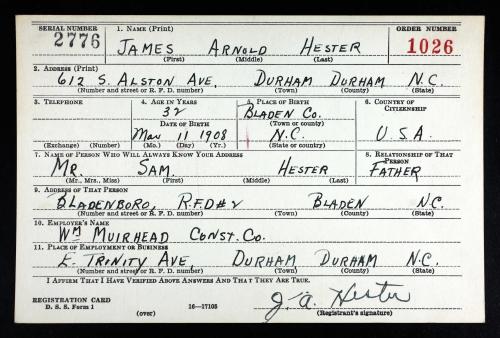 SERIAL NUMBER 1. NAME (Print) ORDER NUMBER
2776 JAMES ARNOLD HESTER 1026
(First) (Middle) (Last)
2. ADDRESS (Print)
612 S. ALSTON AVE, DURHAM DURHAM N.C.
(Number and street or R. F. D. number) (Town) (County) (State)
3. TELEPHONE 4. AGE IN YEARS 5. PLACE OF BIRTH 6. COUNTRY OF CITIZENSHIP
32 BLADEN CO.
DATE OF BIRTH (Town or county)
Mar 11 1908 N.C. U.S.A.
(Exchange) (Number) (Mo.) (Day) (Yr.) (State or country)
7. NAME OF PERSON WHO WILL ALWAYS KNOW YOUR ADDRESS 8. RELATIONSHIP OF THAT PERSON
MR. SAM. HESTER FATHER
(Mr., Mrs., Miss) (First) (Middle) (Last)
9. ADDRESS OF THAT PERSON
BLADENBORO, R.F.D #2 BLADEN N.C.
(Number and street or R. F. D. number) (Town) (County) (State)
10. EMPLOYER'S NAME
WM MUIRHEAD CONST. CO.
11. PLACE OF EMPLOYMENT OR BUSINESS
E. TRINITY AVE, DURHAM DURHAM N.C.
(Number and street or R. F. D. number) (Town) (County) (State)
I AFFIRM THAT I HAVE VERIFIED ABOVE ANSWERS AND THAT THEY ARE TRUE.
REGISTRATION CARD J. A. Hester
D. S. S. Form 1 (over) 16—17105 (Registrant's signature)